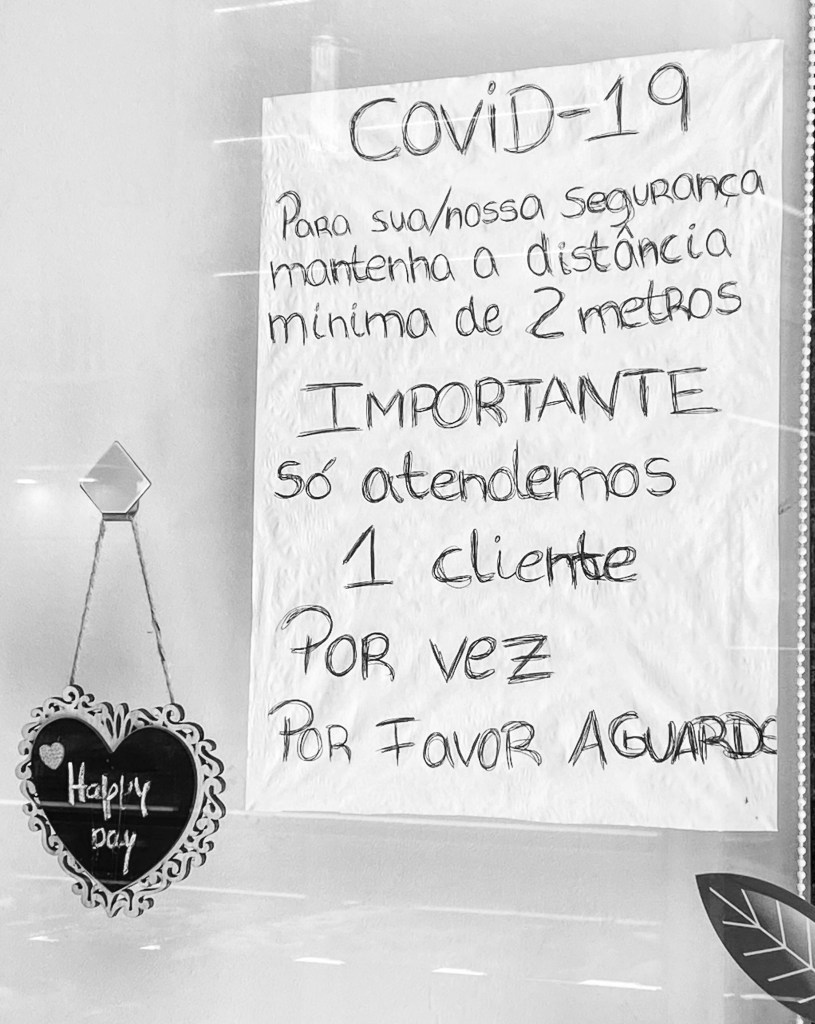 COVID-19
Para sua/nossa segurança
mantenha a distância
mínima de 2 metros
IMPORTANTE
só atendemos
1 cliente
Por vez
Por Favor AGUARDE
Happy
Day